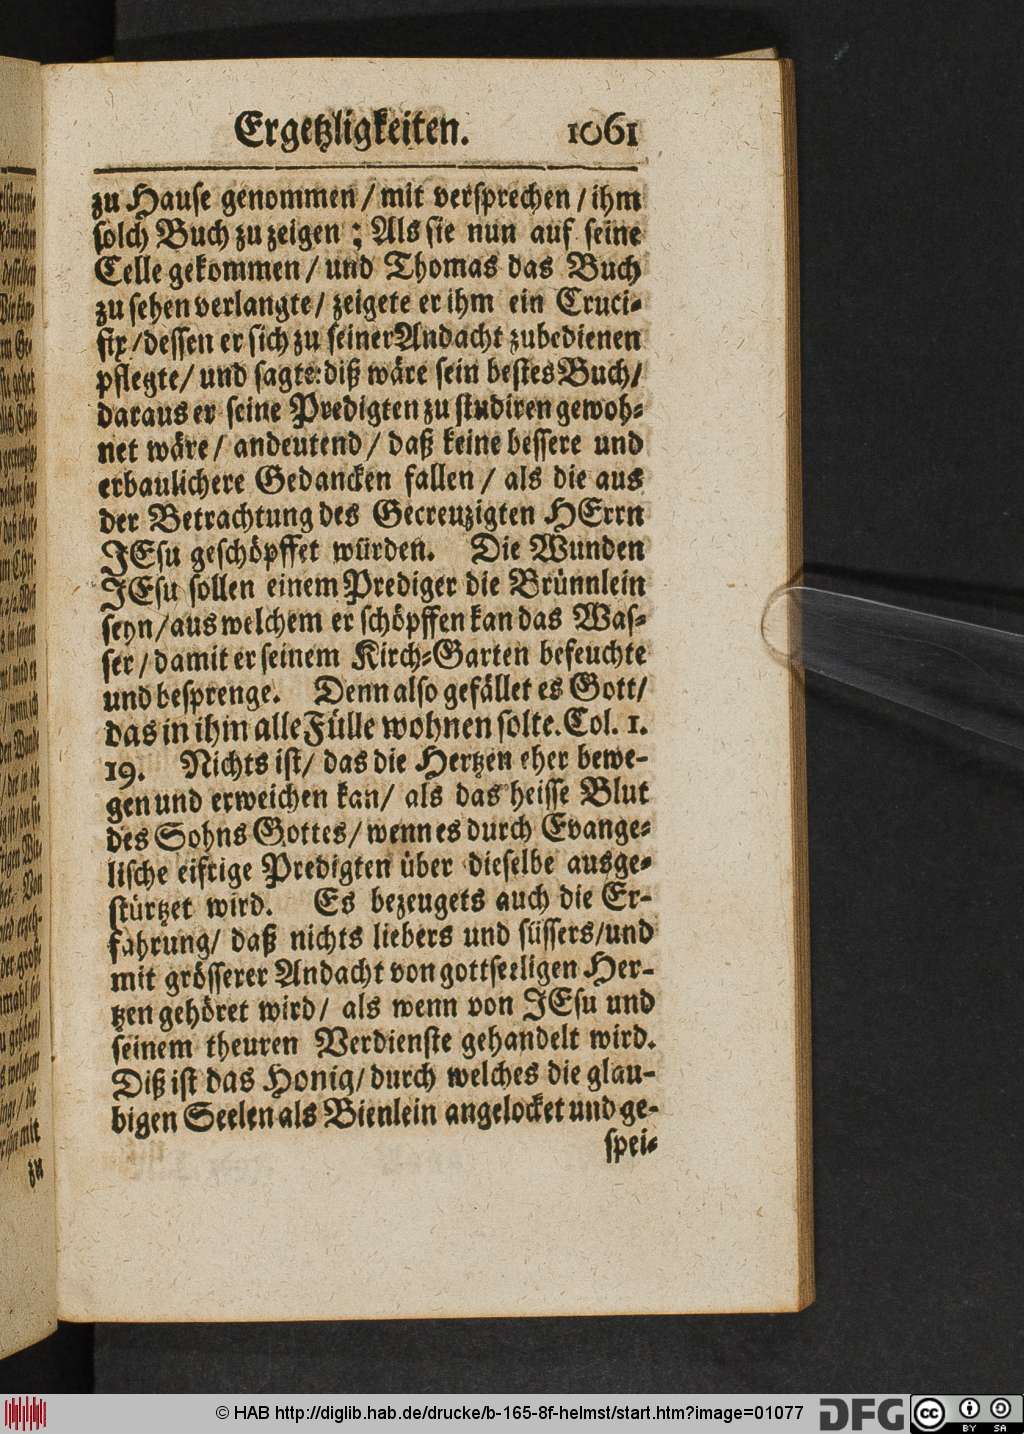 Ergetzligkeiten. 1061
zu Hause genommen / mit versprechen / ihm
solch Buch zu zeigen ; Als sie nun auf seine
Celle gekommen / und Thomas das Buch
zu sehen verlangte / zeigete er ihm ein Cruci-
fix / dessen er sich zu seiner Andacht zubedienen
pflegte / und sagte: diß wäre sein bestes Buch /
daraus er seine Predigten zu studiren gewoh-
net wäre / andeutend / daß keine bessere und
erbaulichere Gedancken fallen / als die aus
der Betrachtung des Gecreuzigten HErrn
JEsu geschöpffet würden. Die Wunden
JEsu sollen einem Prediger die Brünnlein
seyn / aus welchem er schöpffen kan das Was-
ser / damit er seinem Kirch-Garten befeuchte
und besprenge. Denn also gefället es Gott /
das in ihm alle Fülle wohnen solte. Col. 1.
19. Nichts ist / das die Hertzen eher bewe-
gen und erweichen kan / als das heisse Blut
des Sohns Gottes / wenn es durch Evange-
lische eifrige Predigten über dieselbe ausge-
stürtzet wird. Es bezeugets auch die Er-
fahrung / daß nichts liebers und süssers / und
mit grösserer Andacht von gottseeligen Her-
tzen gehöret wird / als wenn von JEsu und
seinem theuren Verdienste gehandelt wird.
Diß ist das Honig / durch welches die glau-
bigen Seelen als Bienlein angelocket und ge-
spei-
© HAB http://diglib.hab.de/drucke/b-165-8f-helmst/start.htm?image=01077
DFG
cc BY SA